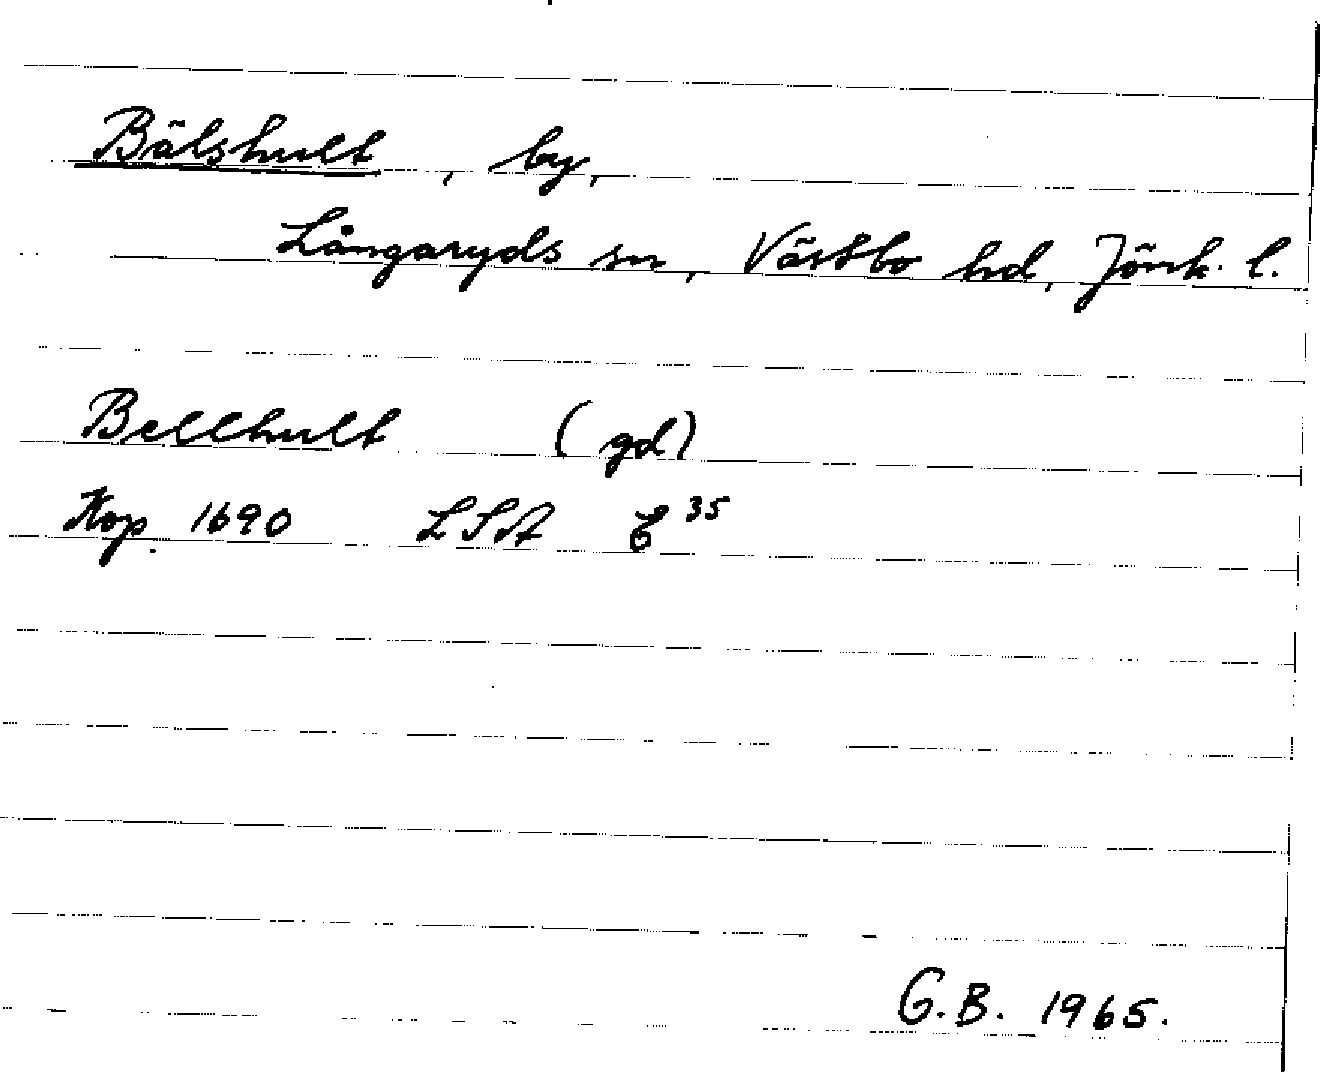 Bälshult, by,
Långaryds sn, Västbo hd, Jönk. l.
Bellhult (gd)
Kop. 1690 LSA E 35
G.B. 1965.